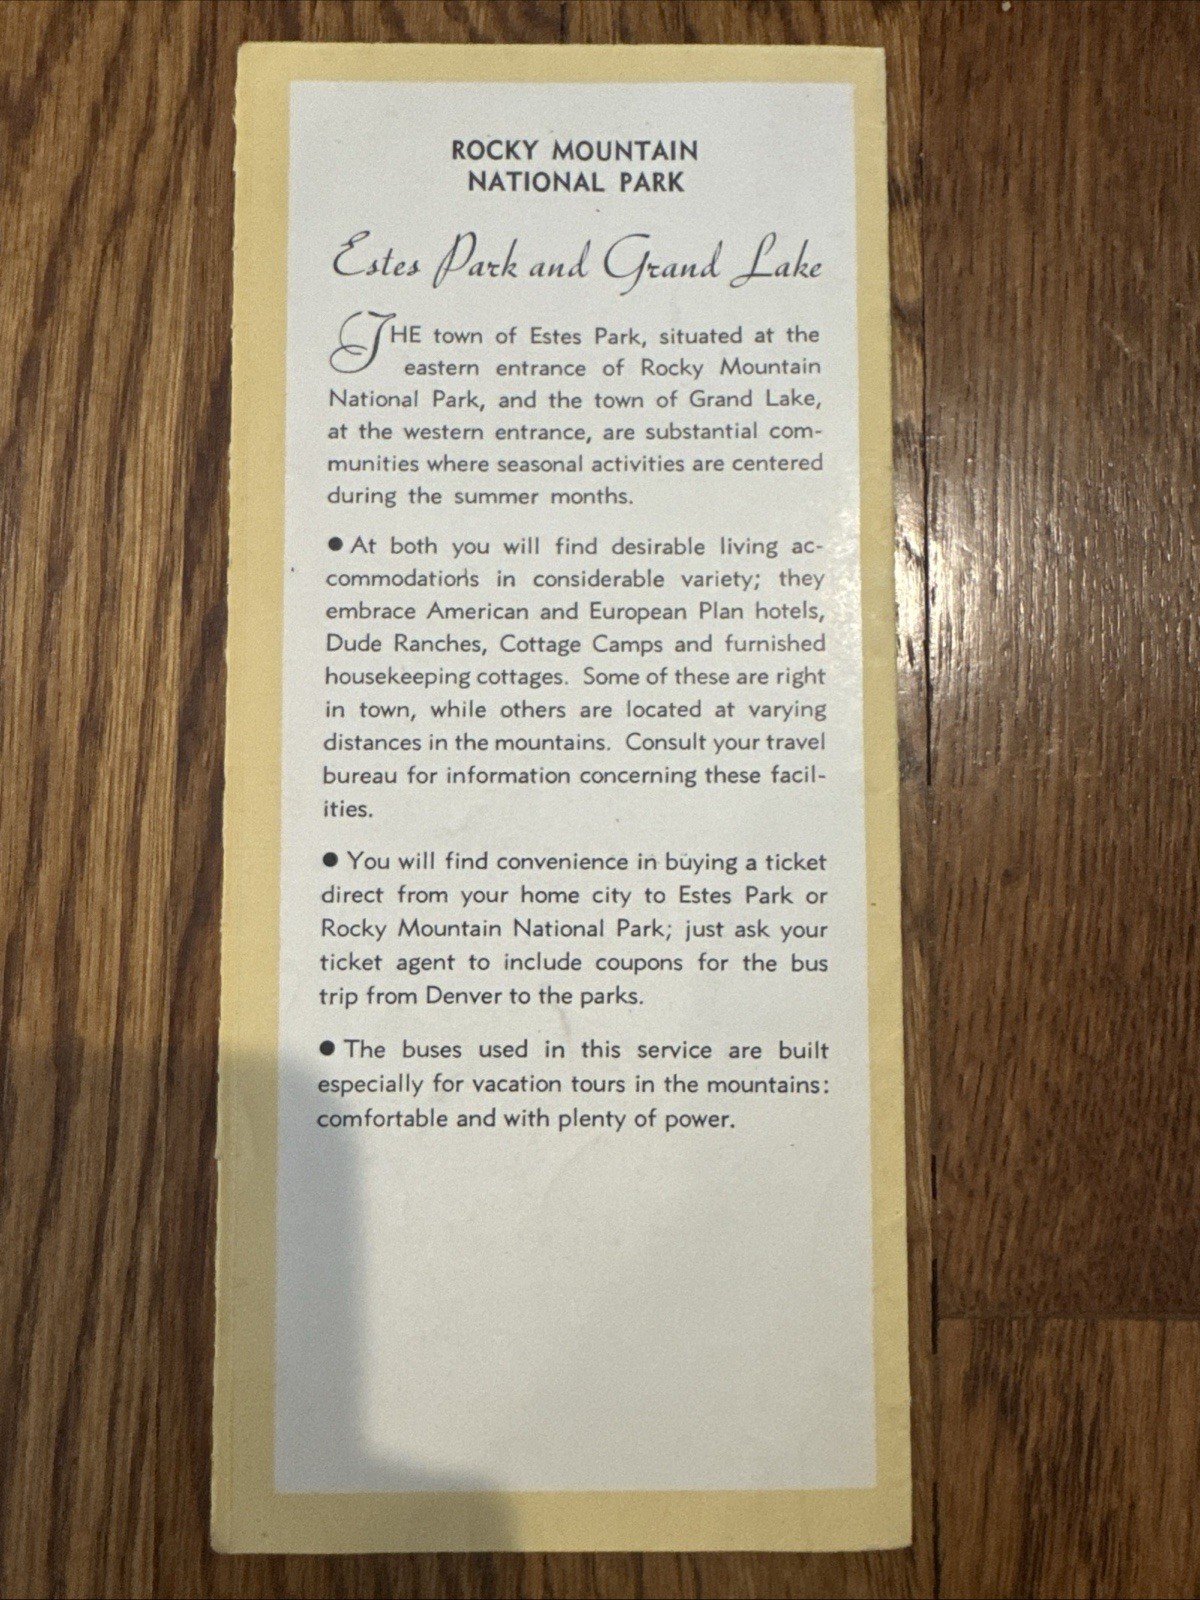 ROCKY MOUNTAIN
NATIONAL PARK
Estes Park and Grand Lake
THE town of Estes Park, situated at the
eastern entrance of Rocky Mountain
National Park, and the town of Grand Lake,
at the western entrance, are substantial com-
munities where seasonal activities are centered
during the summer months.
● At both you will find desirable living ac-
commodations in considerable variety; they
embrace American and European Plan hotels,
Dude Ranches, Cottage Camps and furnished
housekeeping cottages. Some of these are right
in town, while others are located at varying
distances in the mountains. Consult your travel
bureau for information concerning these facil-
ities.
● You will find convenience in buying a ticket
direct from your home city to Estes Park or
Rocky Mountain National Park; just ask your
ticket agent to include coupons for the bus
trip from Denver to the parks.
● The buses used in this service are built
especially for vacation tours in the mountains:
comfortable and with plenty of power.